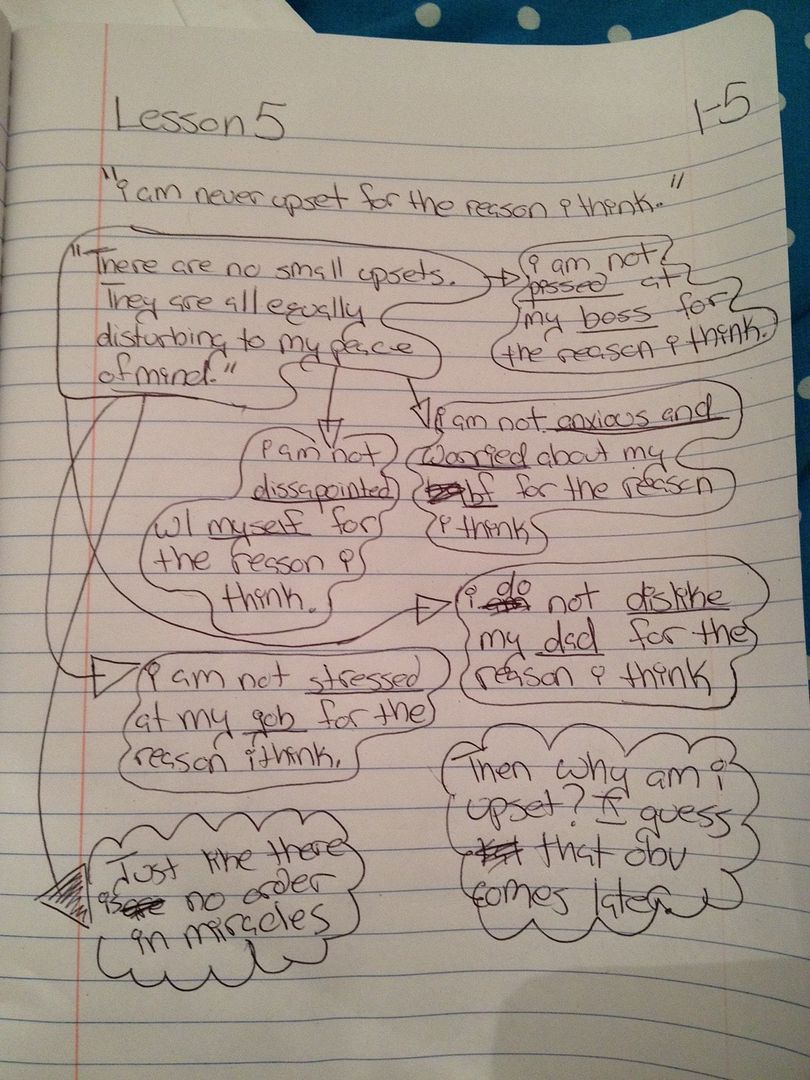 Lesson 5
1-5
"i am never upset for the reason i think."
"There are no small upsets.
They are all equally
disturbing to my peace
of mind."
i am not
pissed at
my boss for
the reason i think.
i am not anxious and
worried about my
bf for the reason
i think
i am not
dissapointed
w/ myself for
the reason i
think.
i do not dislike
my dad for the
reason i think
i am not stressed
at my gob for the
reason i think.
Then why am i
upset? I guess
that obv
comes later.
Just like there
is no order
in miracles